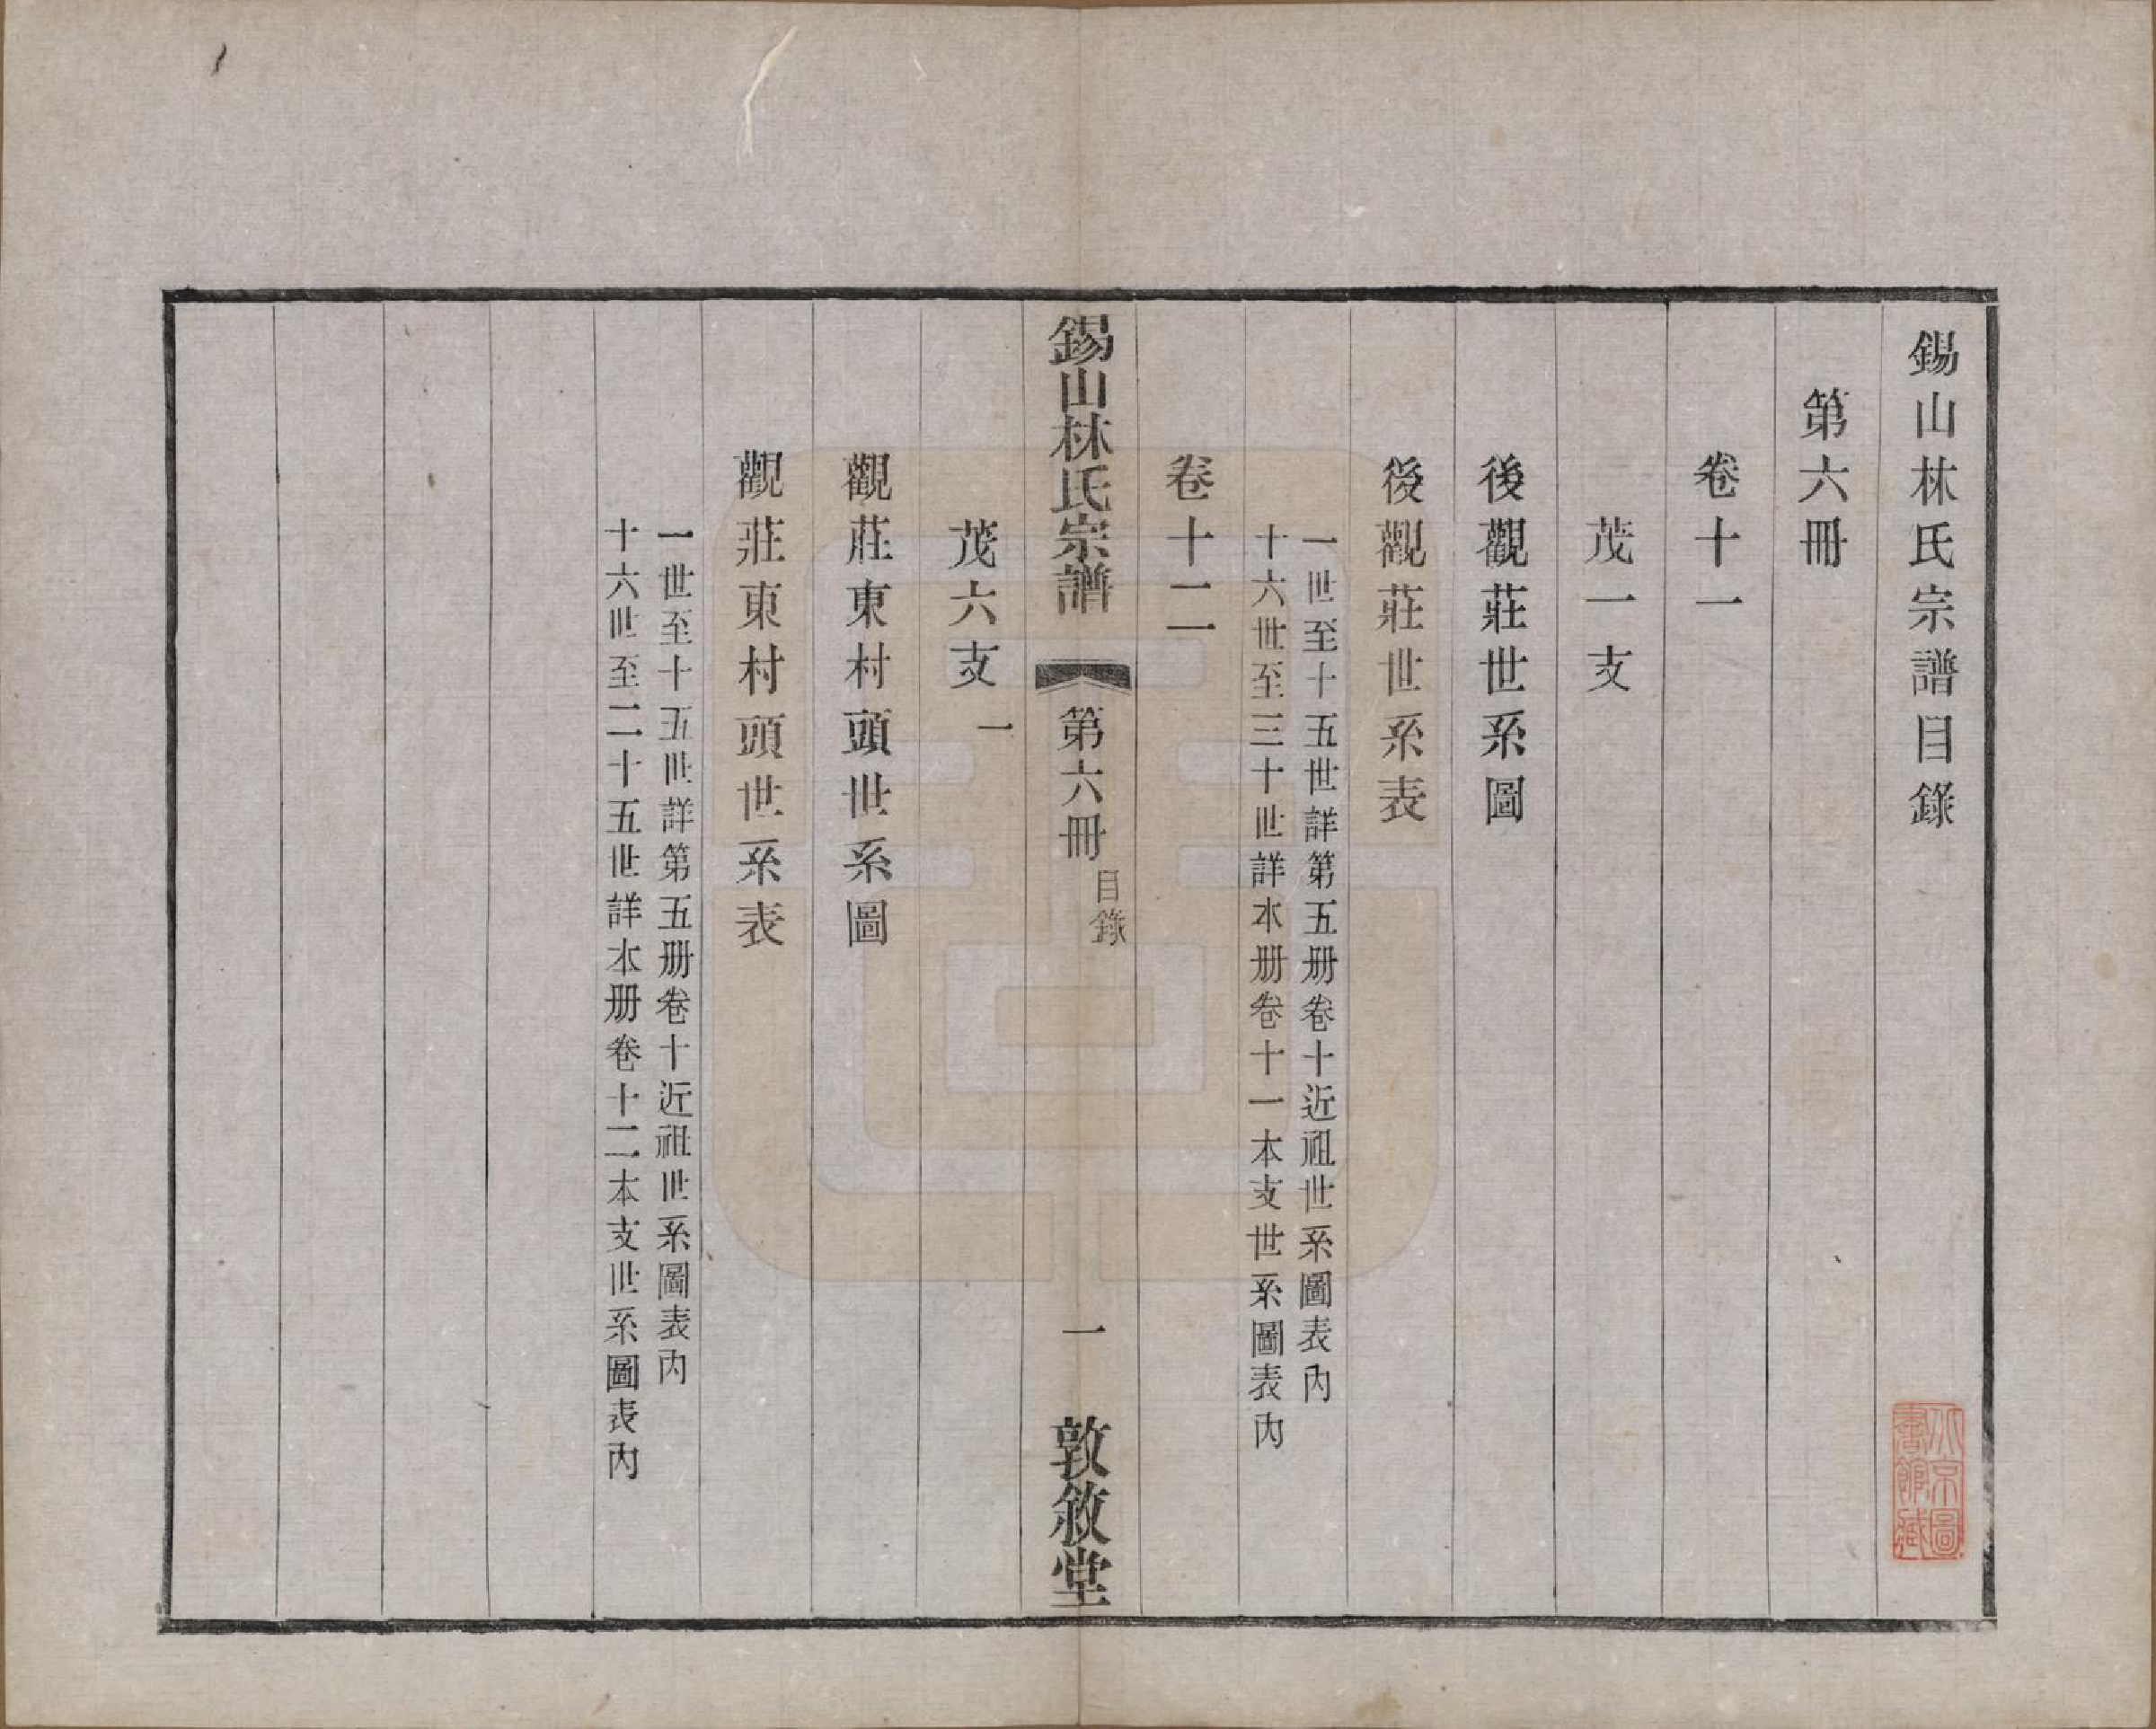 錫山林氏宗譜目錄
第六冊
卷十一
茂一支
後觀莊世系圖
後觀莊世系表
一世至十五世詳第五册卷十近祖世系圖表內
十六世至三十世詳本册卷十一本支世系圖表內
卷十二
錫山林氏宗譜
第六冊
目錄
一
敦敘堂
茂六支一
觀莊東村頭世系圖
觀莊東村頭世系表
一世至十五世詳第五册卷十近祖世系圖表內
十六世至二十五世詳本册卷十二本支世系圖表內
北京圖
書館藏